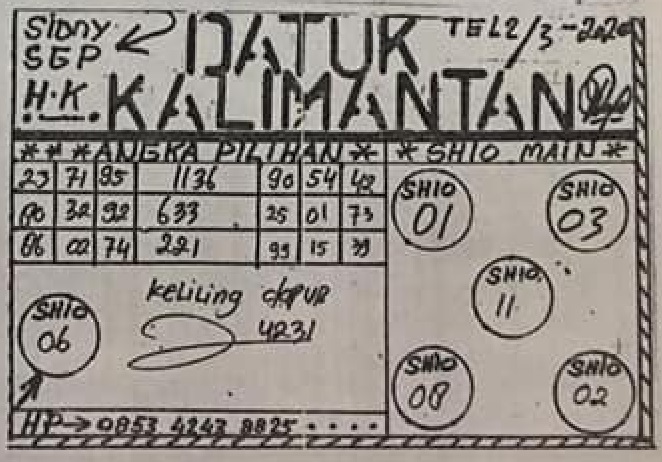 SIDNY
SGP
H.K.
DATUK
KALIMANTAN
TEL 2/3-2020
* * * ANGKA PILIHAN * * SHIO MAIN *
23 71 95 1136 90 54 42
60 32 92 633 25 01 73
06 02 74 221 99 15 39
SHIO 01
SHIO 03
SHIO 11
SHIO 08
SHIO 02
SHIO 06
keliling dapur
4231
HP → 0853 4243 8825 . . . .